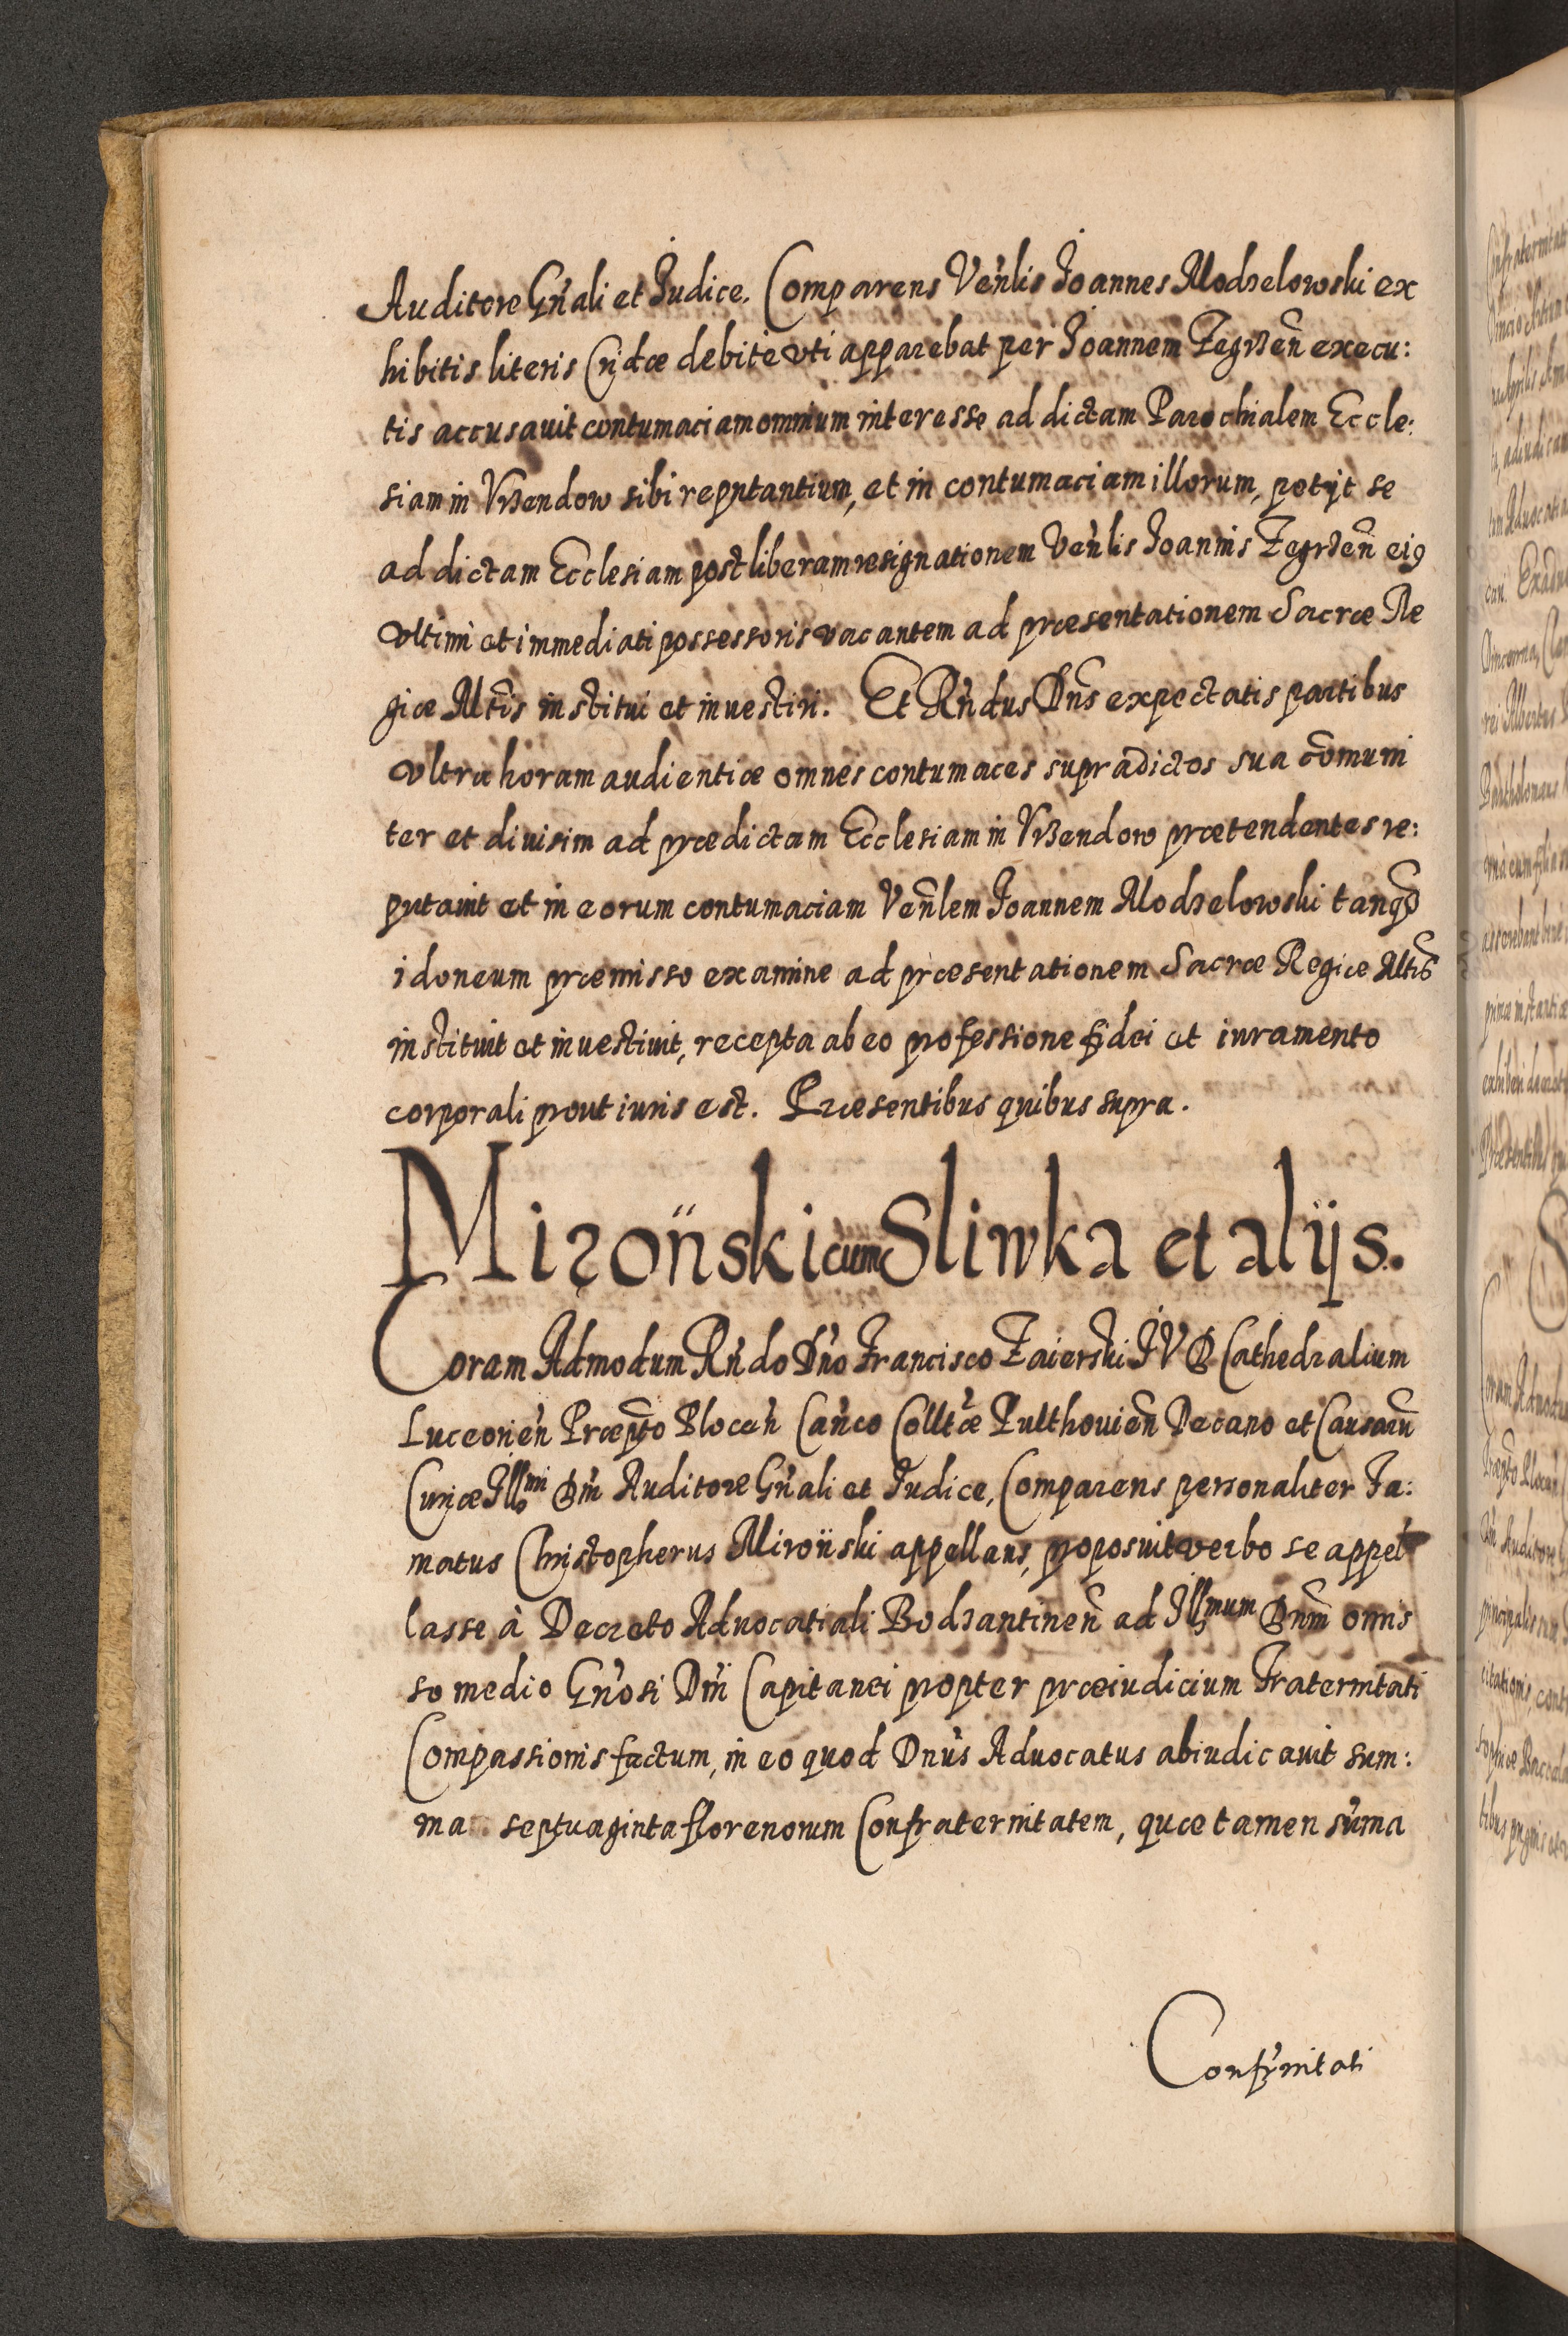 Auditore Gn̄ali et Judice. Comparens Ven̄lis Joannes Modzelowski ex
hibitis literis Cridæ debite vti apparebat per Joannem Zegrzen̄ execu:
tis accusauit contumaciam omnium interesse ad dictam Parochialem Eccle:
siam in Vrzendow sibi repn̄tantium, et in contumaciam illorum, petijt se
ad dictam Ecclesiam post liberam resignationem Ven̄lis Joannis Zegrzen̄ eiꝰ
vltimi et immediati possessoris vacantem ad præsentationem Sacræ Re
giæ Mtis institui et inuestiri. Et Rn̄dus Dn̄s expectatis partibus
vltra horam audientiæ omnes contumaces supradictos sua com̄uni
ter et diuisim ad prædictam Ecclesiam in Vrzendow prætendentes re:
putauit et in eorum contumaciam Ven̄lem Joannem Modzelowski tanqꝫ
idoneum præmisso examine ad præsentationem Sacræ Regiæ Mtis
instituit et inuestiuit, recepta ab eo professione fidei et iuramento
corporali prout iuris est. Præsentibus quibus supra.
Miroński cum Sliwka et alijs.
Coram Admodum Rn̄do Dn̄o Francisco Zaierski JVD Cathedralium
Luceorien̄ Præpto Plocen̄ Can̄co Colltæ Pulthouien̄ Decano et Causarū
Curiæ Jllmi Dn̄i Auditore Gn̄ali et Judice, Comparens personaliter Fa:
matus Christopherus Miroński appellans, proposuit verbo se appel
lasse à Decreto Aduocatiali Bodzantinen̄ ad Jllmum Dn̄m omis
so medio Gn̄osi Dn̄i Capitanei propter præiudicium Fraternitati
Compassionis factum, in eo quod Dn̄us Aduocatus abiudicauit sum:
ma septuaginta florenorum Confraternitatem, quæ tamen sum̄a
Confrn̄itati